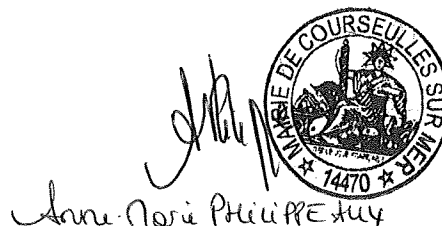 MAIRIE DE COURSEULLES SUR MER
★ 14470 ★
Anne-Marie PHILIPPEAUX